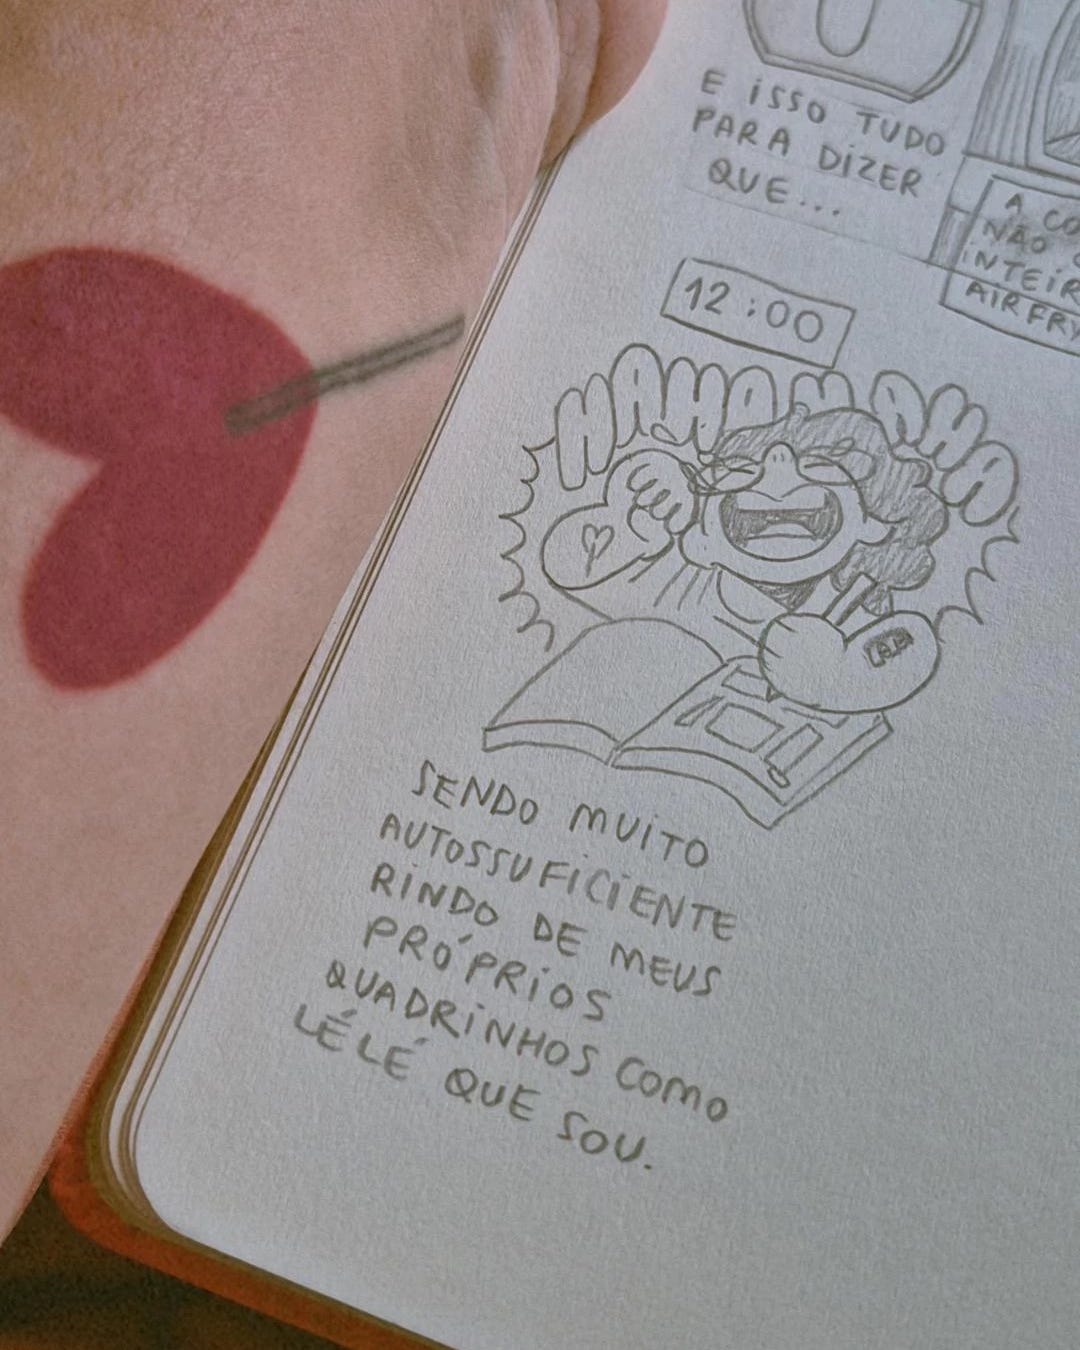 E ISSO TUDO
PARA DIZER
QUE...
A
NÃO
AIRFRY
12:00
HAHAHAHAHA
SENDO MUITO
AUTOSSUFICIENTE
RINDO DE MEUS
PRÓPRIOS
QUADRINHOS COMO
LÉLÉ QUE SOU.